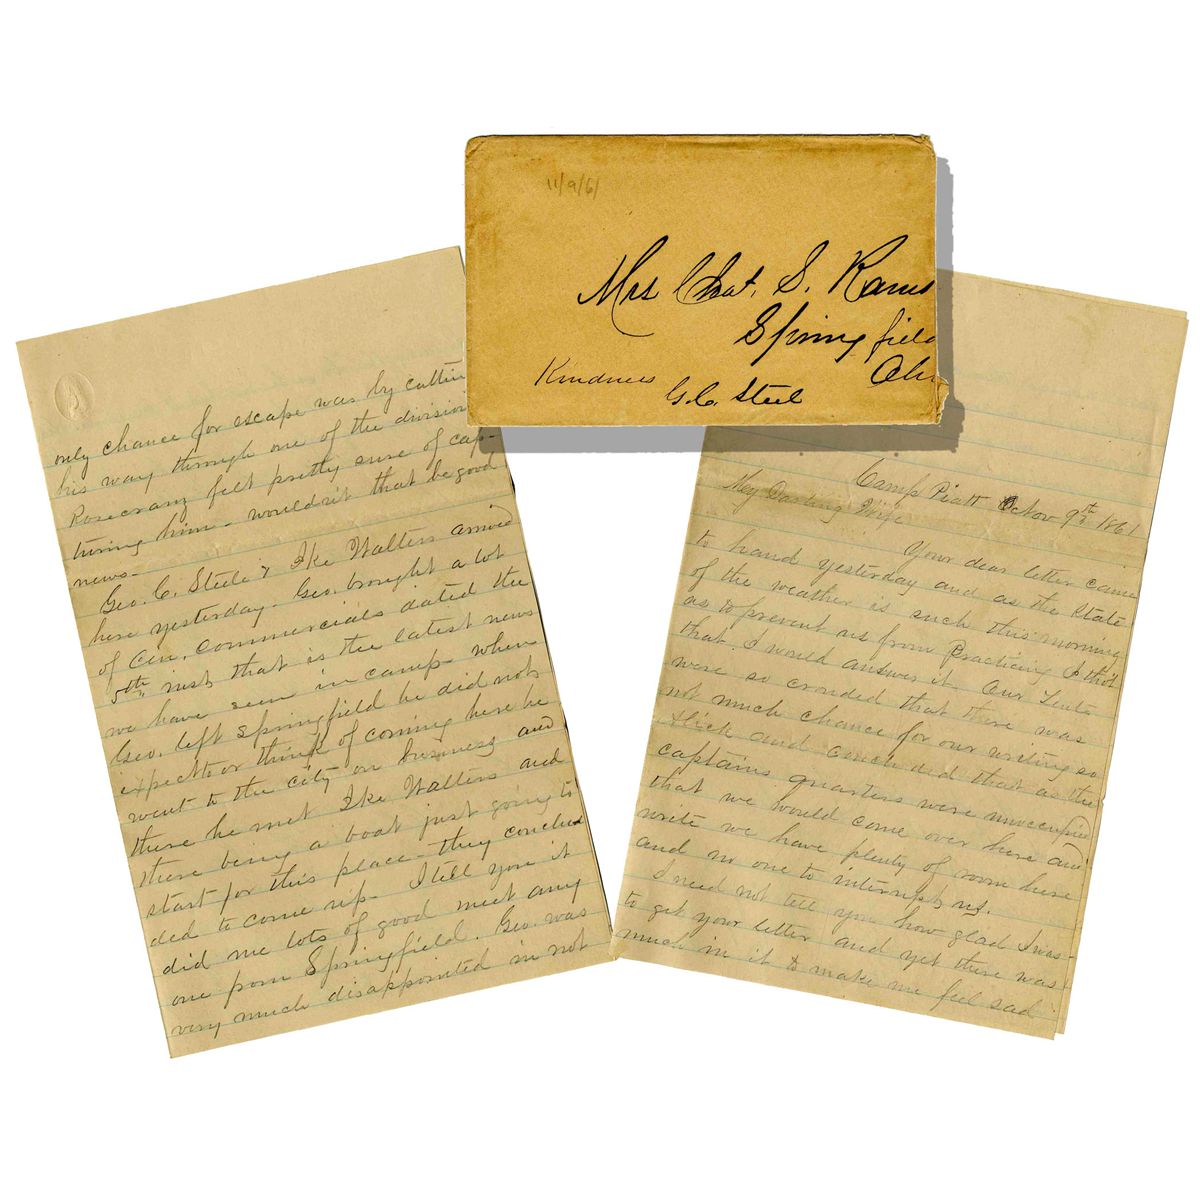 11/9/61
Mrs Chat. S. Rams
Springfield
Ohi
Kindness
G.C. Steel
only chance for escape was by cuttin
his way through one of the division
Rosecranz felt pretty sure of cap-
turing him - wouldn't that be good
news -
Geo. C. Steele & Ike Walters arrived
here yesterday. Geo. brought a lot
of Cin. Commercials dated the
inst, that is the latest news
we have seen in camp - when
Geo. left Springfield he did not
expect to or think of coming here he
went to the city on business and
there he met Ike Walters and
there being a boat just going to
start for this place - they conclu
ded to come up. I tell you it
did me lots of good meet any
one from Springfield. Geo. was
very much disappointed in not
Camp Piatt Nov 9th 1861
My Darling Wife
Your dear letter came
to hand yesterday and as the State
of the weather is such this morning
as to prevent us from Practicing I tho't
that I would answer it. Our Tents
were so crowded that there was
not much chance for our writing so
Flick and concluded that as the
captains quarters were unoccupied
that we would come over here and
write we have plenty of room here
and no one to interrupt us.
I need not tell you how glad I was
to get your letter and yet there was
much in it to make me feel sad